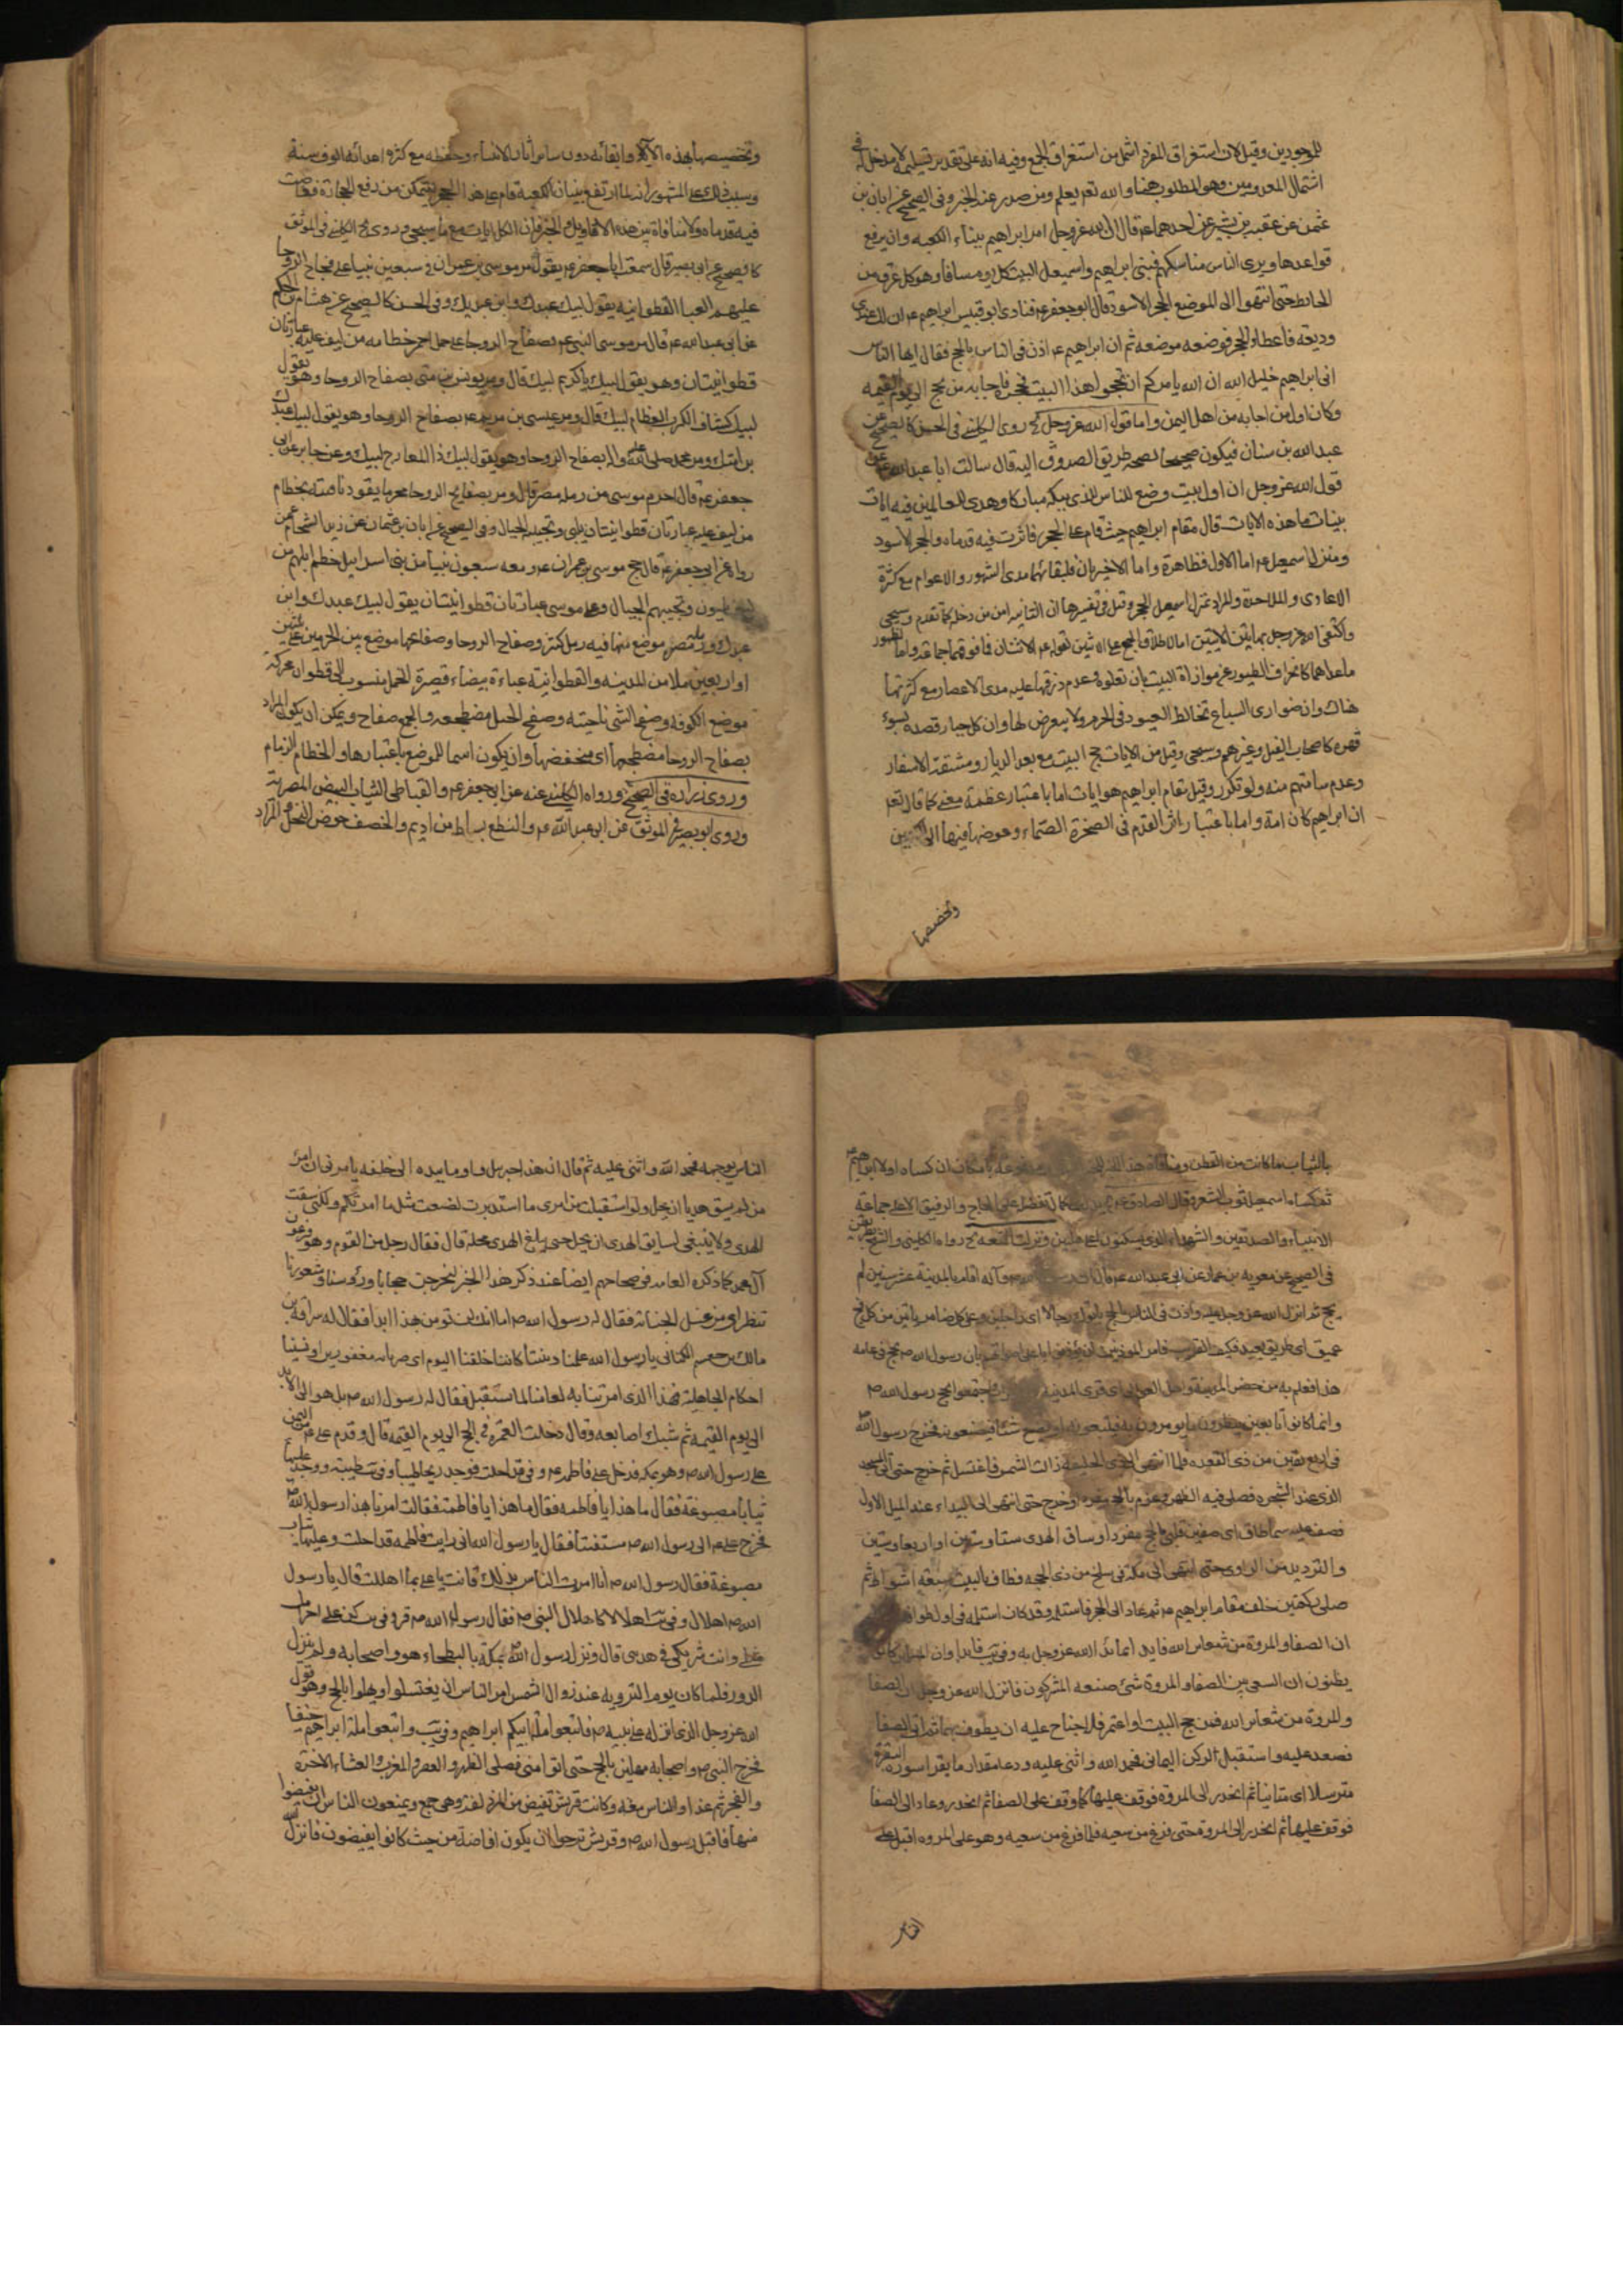 للموجودين وقيل لان استغراق المفرد اشمل من استغراق الجمع وفيه انه على تقدير تسليمه لا مدخل له في
اشتمال المعدومين وهو المطلوب هنا والله تعم يعلم ومن صدر عنه الخبر وفى الصحيح عن ابان بن
عثمن عن عقبه بن بشير عن احدهما ع قال ان الله عز وجل امر ابراهيم ببناء الكعبه وان يرفع
قواعدها ويرى الناس مناسكهم فبنى ابراهيم واسمعيل البيت كل يوم سافا وهو كل عرق من
الحايط حتى انتهوا الى الموضع الحجر الاسود قال ابو جعفر ع فنادى ابو قبيس ابراهيم ع ان لك عندى
وديعه فاعطاه الحجر فوضعه موضعه ثم ان ابراهيم ع اذن فى الناس بالحج فقال ايها الناس
انى ابراهيم خليل الله ان الله يامركم ان تحجوا هذا البيت فحجوه فاجابه من يحج الى يوم القيمه
وكان اول من اجابه من اهل اليمن واما قول الله عز وجل روى الكلينى فى الحسن كالصحيح عن
عبدالله بن سنان فيكون صحيحا لصحه طريق الصدوق اليه قال سالت ابا عبدالله ع عن
قول الله عز وجل ان اول بيت وضع للناس للذى ببكه مباركا وهدى للعالمين فيه ايات
بينات ما هذه الايات قال مقام ابراهيم حيث قام على الحجر فاثرت فيه قدماه والحجر الاسود
ومنزل اسمعيل ع اما الاول فظاهرة واما الاخيران فلبقائهما مدى الشهور والاعوام مع كثرة
الاعادى والملاحدة والمراد بمنزل اسمعيل الحجر وقيل فى تفسيرها ان الثانيه امن من دخله كما تقدم وسيجى
واكتفى الله عز وجل بهاتين الايتين اما لاطلاق الجمع على الاثنين لقوله ع الاثنان فما فوقهما جماعة واما لظهور
ماعداهما كانحراف الطيور عن موازاة البيت بان تعلوه وعدم ذرقها عليه مدى الاعصار مع كثرتها
هناك وان ضوارى السباع تخالط الصيود فى الحرم ولا يتعرض لها وان كل جبار قصده بسوء
قهره كاصحاب الفيل وغيرهم وسيجى وقيل من الايات حج البيت مع بعد الديار ومشقة الاسفار
وعدم سامتهم منه ولو تكرر وقيل مقام ابراهيم هو ايات اما باعتبار عظمة معنى كما قال تعم
ان ابراهيم كان امة واما باعتبار اثر القدم فى الصخرة الصماء وغوصها فيها الى الكعبين
وتخصيصها
وتخصيصها بهذه الآية وابقائه دون ساير اثار الانبياء وحفظه مع كثرة اعدائه الوف سنة
وسبب ذلك على المشهور انه لما ارتفع بنيان الكعبه قام على هذا الحجر ليتمكن من رفع الحجارة فغاصت
فيه قدماه ولا منافاة بين هذه الاقاويل والخبر فان الكل ايات مع ما سيجى وروى الكلينى فى الموثق
كالصحيح عن ابى بصير قال سمعت ابا جعفر ع يقول مر موسى بن عمران فى سبعين نبيا على فجاج الروحا
عليهم العبا القطوانيه يقول لبيك عبدك وابن عبديك وفى الحسن كالصحيح عن هشام بن الحكم
عن ابى عبدالله ع قال مر موسى النبى ع بصفاح الروحا على جمل احمر خطامه من ليف عليه عباءتان
قطوانيتان وهو يقول لبيك يا كريم لبيك قال ومر يونس بن متى بصفاح الروحا وهو يقول
لبيك كشاف الكرب العظام لبيك قال ومر عيسى بن مريم ع بصفاح الروحا وهو يقول لبيك عبدك
بن امتك ومر محمد صلى الله عليه واله بصفاح الروحا وهو يقول لبيك ذا المعارج لبيك وعن جابر عن ابى
جعفر ع قال احرم موسى من رمله مصر قال ومر بصفايح الروحا محرما يقود ناقته بخطام
من ليف عليه عباءتان قطوانيتان يلبى وتجيبه الجبال وفى الصحيح عن ابان بن عثمان عن زيد الشحام عمن
رواه عن ابى جعفر ع قال حج موسى بن عمران ع ومعه سبعون نبيا من بنى اسرائيل خطم ابلهم من
ليف يلبون وتجيبهم الجبال وعلى موسى عباءتان قطوانيتان يقول لبيك عبدك وابن
عبدك ورملة مصر موضع منها فيه رمل كثير وصفاح الروحا وصفاعها موضع بين الحرمين على ثلثين
او اربعين ميلا من المدينه والقطوانية عباءة بيضاء قصيرة الخمل منسوب الى قطوان محركة
موضع بالكوفه وصفح الشى ناحيته وصفح الجبل مضطجعه والجمع صفاح ويمكن ان يكون المراد
بصفاح الروحا مضطجعها اى منخفضها وان يكون اسما للموضع باعتبارها والخطام الزمام
وروى زراره فى الصحيح ورواه الكلينى عنه عن ابى جعفر ع والقباطى الثياب البيض المصرية
وروى ابو بصير فى الموثق عن ابى عبدالله ع والنطع بساط من اديم والخصف خوص النخل والمراد
بالثياب ما كانت من القطن ومنافاة هذا الخبر بامكان ان كساه اولا ابراهيم
ثم كساه اسمعيل ثوب الشعر وقال الصادق ع تفضل على الحاج والرفيق الاعلى جماعة
الانبياء والصديقين والشهداء الذين يسكنون اعلى عليين ونزلت المتعه رواه الكلينى والشيخ بطريق
فى الصحيح عن معويه بن عمار عن ابى عبدالله ع قال ان رسول الله واله اقام بالمدينة عشر سنين لم
يحج ثم انزل الله عز وجل عليه واذن فى الناس بالحج ياتوك رجالا اى راجلين وعلى كل ضامر ياتين من كل فج
عميق اى طريق بعيد فكيف القريب فامر المؤذنين ان يؤذنوا باعلى اصواتهم بان رسول الله ص يحج فى عامه
هذا فعلم به من حضر المدينة واهل العوالى اى قرى المدينة واجتمعوا لحج رسول الله ص
وانما كانوا تابعين ينظرون ما يومرون به فيتبعونه او يصنع شيئا فيصنعونه فخرج رسول الله ص
فى اربع بقين من ذى القعده فلما انتهى الى ذى الحليفه زالت الشمس فاغتسل ثم خرج حتى اتى المسجد
الذى عند الشجره فصلى فيه الظهر وعزم بالحج مفردا وخرج حتى انتهى الى البيداء عند الميل الاول
فصف له سماطان اى صفين فلبى بالحج مفردا وساق الهدى ستا وستين او اربعا وستين
والترديد من الراوى حتى انتهى الى مكه فى سلخ من ذى الحجه فطاف بالبيت سبعه اشواط ثم
صلى ركعتين خلف مقام ابراهيم ع ثم عاد الى الحجر فاستلمه وقد كان استلمه فى اول طوافه
ان الصفا والمروة من شعائر الله فابدا بما بدا الله عز وجل به وفى يب فابدا وان المسلمين كانوا
يظنون ان السعى بين الصفا والمروة شئ صنعه المشركون فانزل الله عز وجل ان الصفا
والمروة من شعائر الله فمن حج البيت او اعتمر فلا جناح عليه ان يطوف بهما ثم اتى الصفا
فصعد عليه واستقبل الركن اليمانى فحمد الله واثنى عليه ودعا مقدار ما يقرا سورة البقرة
مترسلا اى متانيا ثم انحدر الى المروة فوقف عليها كما وقف على الصفا ثم انحدر وعاد الى الصفا
فوقف عليها ثم انحدر الى المروة حتى فرغ من سعيه فلما فرغ من سعيه وهو على المروه اقبل على
الناس
الناس بوجهه فحمد الله واثنى عليه ثم قال ان هذا جبريل واوما بيده الى خلفه يامرنى ان امر
من لم يسق هديا ان يحل ولو استقبلت من امرى ما استدبرت لصنعت مثل ما امرتكم ولكنى سقت
الهدى ولا ينبغى لسايق الهدى ان يحل حتى يبلغ الهدى محله قال فقال رجل من القوم وهو فرعون
آل محمد كما ذكره العامه فى صحاحهم ايضا عند ذكر هذا الخبر لنخرجن حجاجا ورؤسنا وشعورنا
تقطر اى من غسل الجنابة فقال له رسول الله ص اما انك لن تومن بهذا ابدا فقال له سراقه بن
مالك بن جعشم الكنانى يا رسول الله علمنا ديننا كاننا خلقنا اليوم اى صرنا مغفورين او نسينا
احكام الجاهلية فهذا الذى امرتنا به لعامنا لما نستقبل فقال له رسول الله ص بل هو الى الابد
الى يوم القيمه ثم شبك اصابعه وقال دخلت العمره فى الحج الى يوم القيمه قال وقدم على ع من اليمن
على رسول الله ص وهو بمكه فدخل على فاطمه ع وهى قد احلت فوجد ريحا طيبا وفى يب طيبة ووجد عليها
ثيابا مصبوغة فقال ما هذا يا فاطمه فقال ما هذا يا فاطمة فقالت امرنا بهذا رسول الله ص
فخرج على ع الى رسول الله ص مستفتيا فقال يا رسول الله انى رايت فاطمه قد احلت وعليها ثياب
مصبوغة فقال رسول الله ص انا امرت الناس بذلك فانت يا على بما اهللت قال يا رسول
الله ص اهلال وفى يب اهلالا كاهلال النبى ص فقال رسول الله ص قر وفى يب كن على احرامك
مثلى وانت شريكى فى هديى قال ونزل رسول الله ص بمكة بالبطحاء هو واصحابه ولم ينزل
الدور فلما كان يوم الترويه عند زوال الشمس امر الناس ان يغتسلوا ويهلوا بالحج وهو قول
الله عز وجل الذى انزله على نبيه ص فاتبعوا ملة ابيكم ابراهيم وفى يب واتبعوا ملة ابراهيم حنيفا
فخرج النبى ص واصحابه مهلين بالحج حتى اتوا منى فصلى الظهر والعصر والمغرب والعشاء الاخرة
والفجر ثم غدا والناس معه وكانت قريش تفيض من المزدلفة وهى جمع ويمنعون الناس ان يفيضوا
منها فاقبل رسول الله ص وقريش ترجوا ان يكون افاضته من حيث كانوا يفيضون فانزل الله